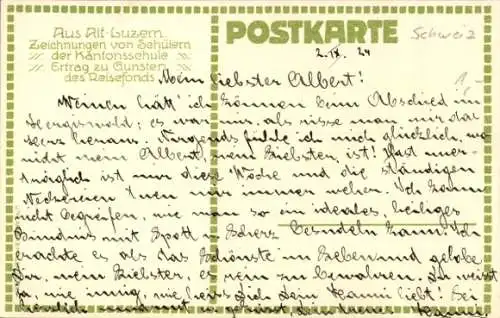 Aus Alt-Luzern
Zeichnungen von Schülern
der Kantonsschule
Ertrag zu Gunsten
des Reisefonds
POSTKARTE
Schweiz
2. IX. 24
1,-
Mein liebster Albert!
Weinen hätt' ich können beim Abschied im
Herrgiswald; es war mir, als risse man mir das
Herz heraus. Nirgends fühle ich mich glücklich, wo
nicht mein Albert, mein Liebster, ist! Fast uner-
träglich ist mir diese Woche und die ständigen
Neckereien tuen mir immer weher. Ich kann
nicht begreifen, wie man so ein ideales, heiliges
Bündnis mit Spott u. Scherz besudeln kann. Ich
erachte es als das Schönste im Leben und gelobe
Dir, mein Liebster, es rein zu bewahren. Du weisst
ja, wie innig, wie heiss Dich Dein liebt! Sei
herzlich u. geküsst